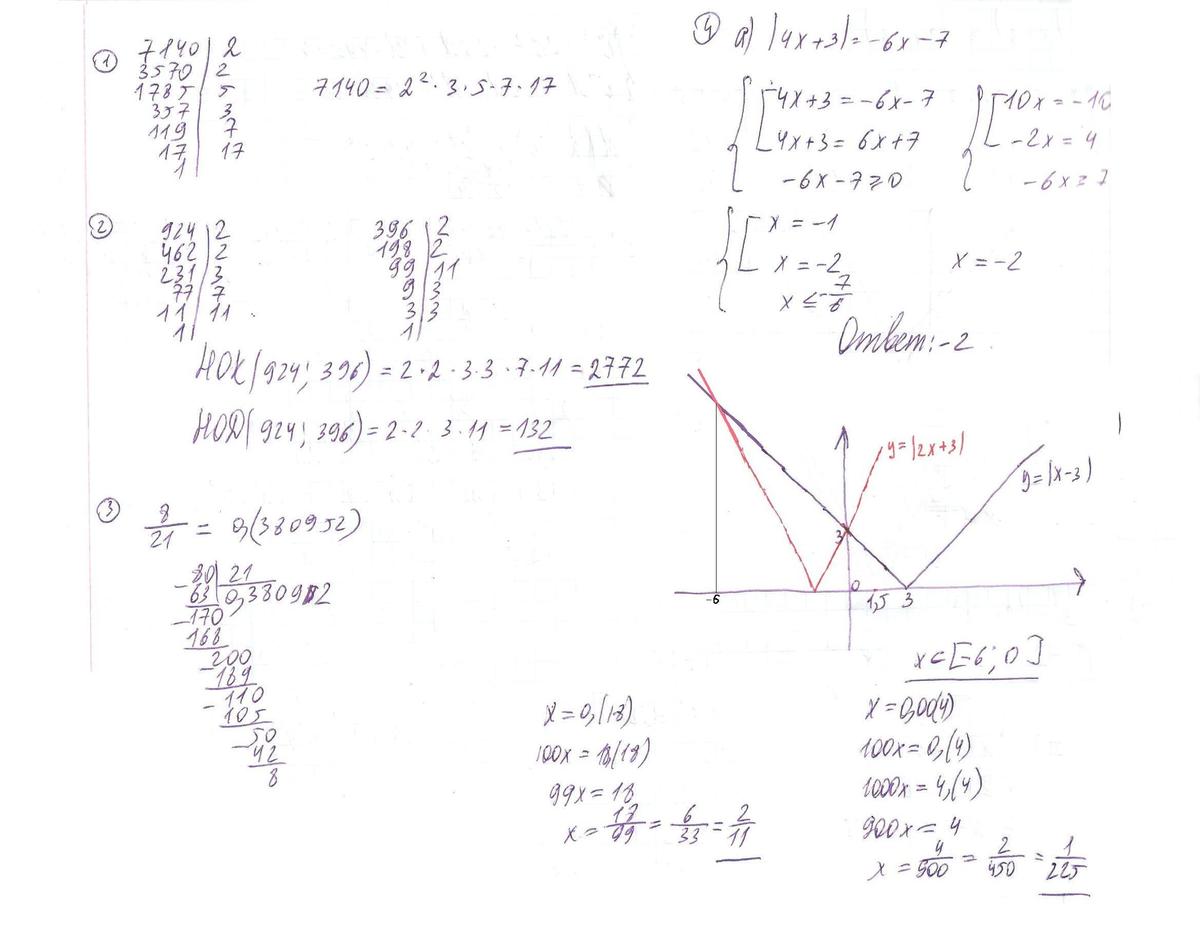 1
7140 | 2
3570 | 2
1785 | 5
357 | 3
119 | 7
17 | 17
1
7140 = 2² · 3 · 5 · 7 · 17
2
924 | 2
462 | 2
231 | 3
77 | 7
11 | 11
1
396 | 2
198 | 2
99 | 11
9 | 3
3 | 3
1
НОК(924; 396) = 2 · 2 · 3 · 3 · 7 · 11 = 2772
НОД(924; 396) = 2 · 2 · 3 · 11 = 132
3
8/21 = 0,(380952)
80 | 21
63 | 0,380952
170
168
200
189
110
105
50
42
8
x = 0,(18)
100x = 18,(18)
99x = 18
x = 18/99 = 6/33 = 2/11
4 а) |4x+3| = -6x-7
4x+3 = -6x-7
4x+3 = 6x+7
-6x-7 ≥ 0
10x = -10
-2x = 4
-6x ≥ 7
x = -1
x = -2
x ≤ -7/6
x = -2
Ответ: -2
y=|2x+3|
y=|x-3|
3
-6
0
1,5
3
x ∈ [-6; 0]
x = 0,00(4)
100x = 0,(4)
1000x = 4,(4)
900x = 4
x = 4/900 = 2/450 = 1/225